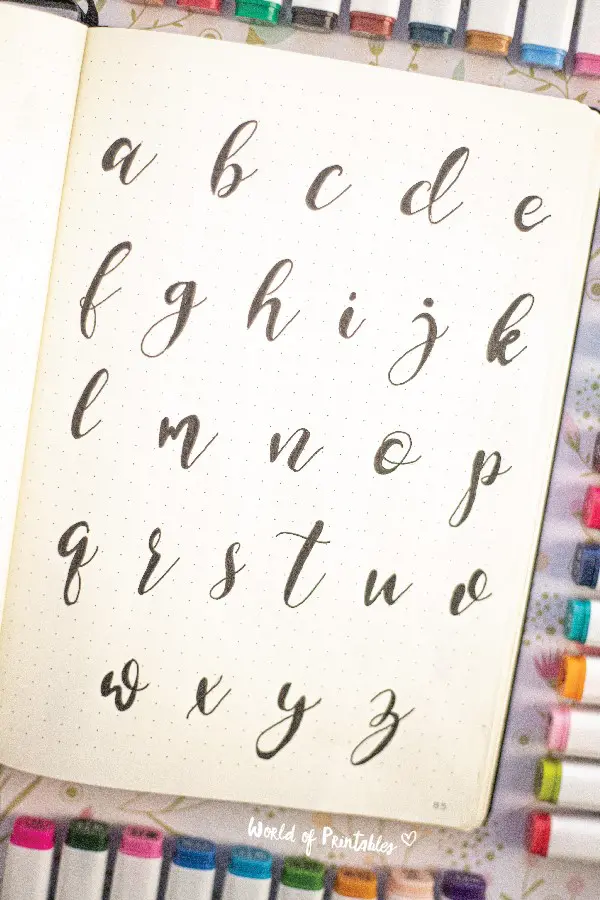 a b c d e
f g h i j k
l m n o p
q r s t u v
w x y z
85
World of Printables